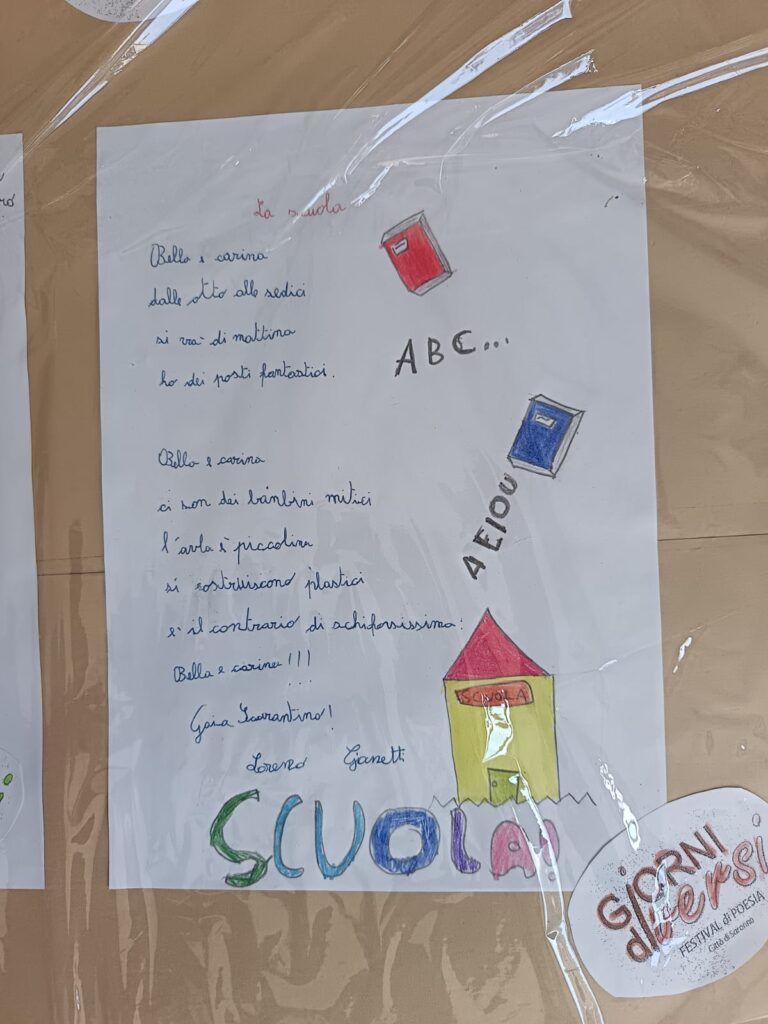 La scuola
Bella e carina
dalle otto alle sedici
si va di mattina
ho dei posti fantastici.
ABC...
Bella e carina
ci son dei bambini mitici
l'aula è piccolina
si costruiscono plastici
A EIOU
è il contrario di schifosissima:
Bella e carina!!!
SCUOLA
Gaia Scarantino!
Lorenzo Gianetti
SCUOLA!
GIORNI
diversi
FESTIVAL di POESIA
Città di Saronno